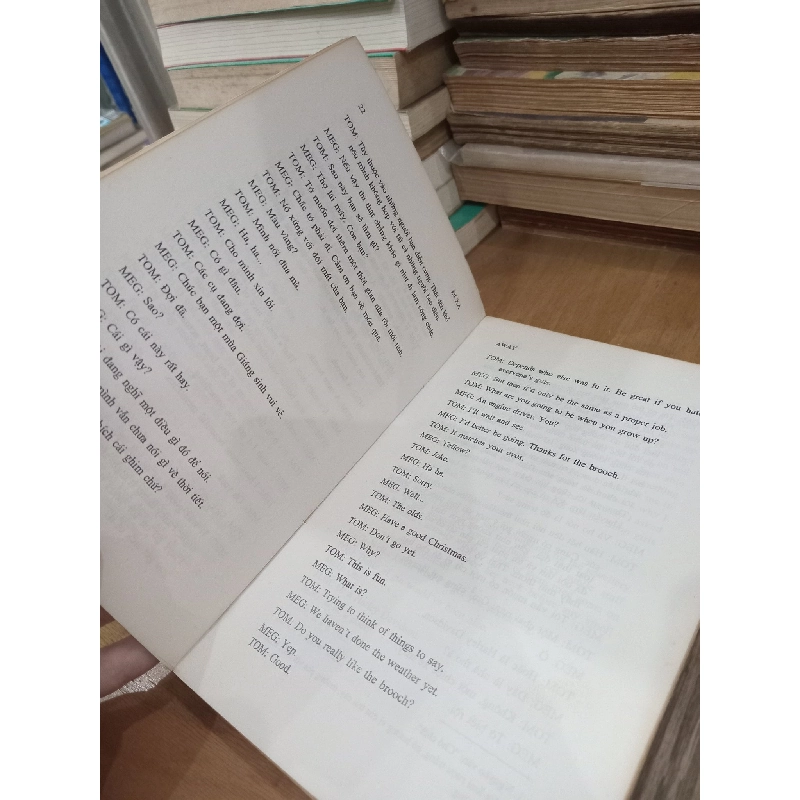 22
TOM: Tùy thuộc vào những người bạn diễn cùng. Thật
nếu mình không hợp với tất cả những người
MEG: Nếu vậy thì thật chẳng khác gì như đi làm công chức.
TOM: Sau này bạn sẽ làm gì?
MEG: Thợ lái máy. Còn bạn?
TOM: Tớ muốn đợi thêm một thời gian nữa rồi mới tính.
MEG: Chắc tớ phải đi. Cảm ơn bạn về món quà.
TOM: Nó xứng với đôi mắt của bạn.
MEG: Màu vàng?
TOM: Mình nói đùa mà.
MEG: Ha, ha...
TOM: Cho mình xin lỗi.
MEG: Có gì đâu.
TOM: Các cụ đang đợi.
MEG: Chúc bạn một mùa Giáng sinh vui vẻ.
TOM: Đợi đã.
MEG: Sao?
TOM: Có cái này rất hay.
Cái gì vậy?
đang nghĩ một điều gì đó để nói.
mình vẫn chưa nói gì về thời tiết.
thích cái ghim chứ?
AWAY
TOM: Depends who else was in it. Be great if you hate
everyone's guts.
MEG: But then it'd only be the same as a proper job.
TOM: What are you going to be when you grow up?
MEG: An engine driver. You?
TOM: I'll wait and see.
MEG: I'd better be going. Thanks for the brooch.
TOM: It matches your eyes.
MEG: Yellow?
TOM: Joke.
MEG: Ha ha.
TOM: Sorry.
MEG: Well...
TOM: The olds.
MEG: Have a good Christmas.
TOM: Don't go yet.
MEG: Why?
TOM: This is fun.
MEG: What is?
TOM: Trying to think of things to say.
MEG: We haven't done the weather yet.
TOM: Do you really like the brooch?
MEG: Yep.
TOM: Good.